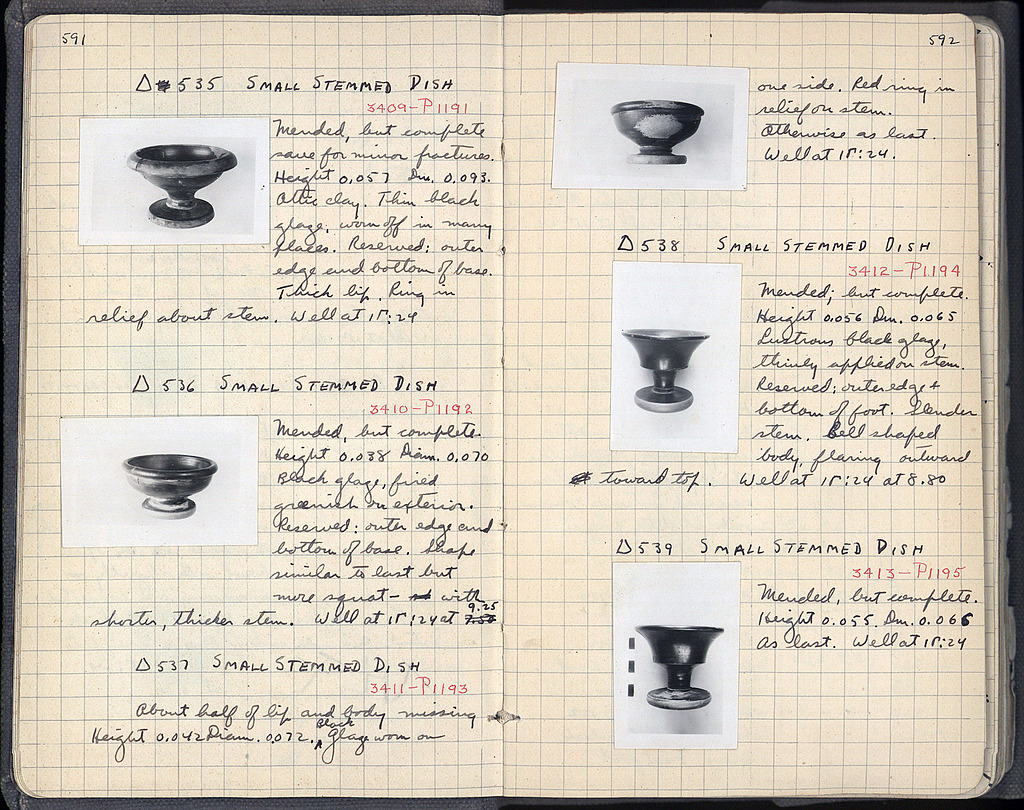 591
Δ 535 SMALL STEMMED DISH
3409-P1191
Mended, but complete
save for minor fractures.
Height 0.057 Dm. 0.093.
Attic clay. Thin black
glaze, worn off in many
places. Reserved: outer
edge and bottom of base.
Thick lip. Ring in
relief about stem. Well at ΙΓ:24
Δ 536 SMALL STEMMED DISH
3410-P1192
Mended, but complete.
Height 0.038 Diam. 0.070
Black glaze, fired
greenish on exterior.
Reserved: outer edge and
bottom of base. Shape
similar to last but
more squat – with
shorter, thicker stem. Well at ΙΓ:24 at 9.25
Δ 537 SMALL STEMMED DISH
3411-P1193
About half of lip and body missing
Height 0.042 Diam. 0.072. Black Glaze worn on
592
one side. Red ring in
relief on stem.
Otherwise as last.
Well at ΙΓ:24.
Δ 538 SMALL STEMMED DISH
3412-P1194
Mended; but complete.
Height 0.056 Dm. 0.065
Lustrous black glaze,
thinly applied on stem.
Reserved: outer edge +
bottom of foot. Slender
stem. Bell shaped
body, flaring outward
toward top. Well at ΙΓ:24 at 8.80
Δ 539 SMALL STEMMED DISH
3413-P1195
Mended, but complete.
Height 0.055. Dm. 0.066
As last. Well at ΙΓ:24